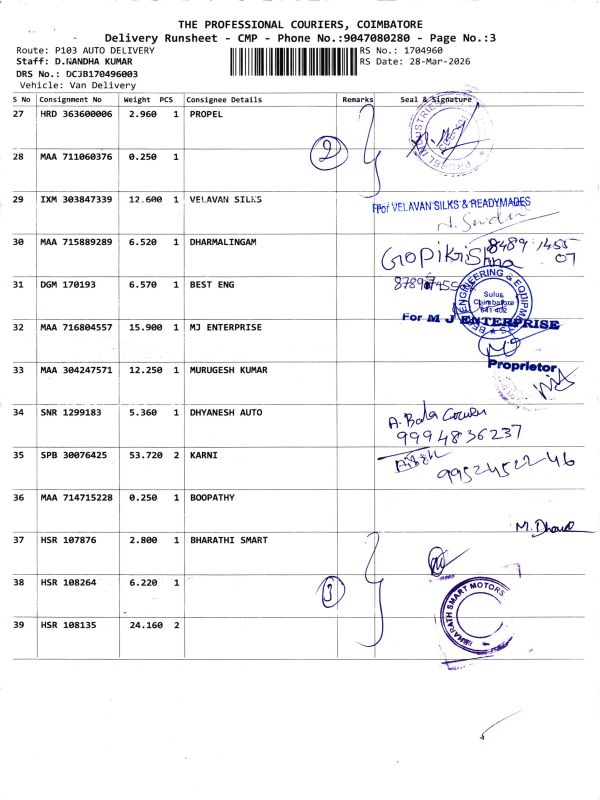 THE PROFESSIONAL COURIERS, COIMBATORE
Delivery Runsheet - CMP - Phone No.:9047080280 - Page No.:3
Route: P103 AUTO DELIVERY
RS No.: 1704960
Staff: D.NANDHA KUMAR
RS Date: 28-Mar-2026
DRS No.: DCJB170496003
Vehicle: Van Delivery
S No Consignment No Weight PCS Consignee Details Remarks Seal & Signature
27 HRD 363600006 2.960 1 PROPEL
2
28 MAA 711060376 0.250 1
29 IXM 303847339 12.600 1 VELAVAN SILKS
For VELAVAN SILKS & READYMADES
30 MAA 715889289 6.520 1 DHARMALINGAM
Gopikrishna
31 DGM 170193 6.570 1 BEST ENG
Sulur
Coimbatore
641 402
32 MAA 716804557 15.900 1 MJ ENTERPRISE
For M J ENTERPRISE
Proprietor
33 MAA 304247571 12.250 1 MURUGESH KUMAR
34 SNR 1299183 5.360 1 DHYANESH AUTO
9994836237
35 SPB 30076425 53.720 2 KARNI
99524522-46
36 MAA 714715228 0.250 1 BOOPATHY
37 HSR 107876 2.800 1 BHARATHI SMART
38 HSR 108264 6.220 1
3
BHARATH SMART MOTORS
39 HSR 108135 24.160 2